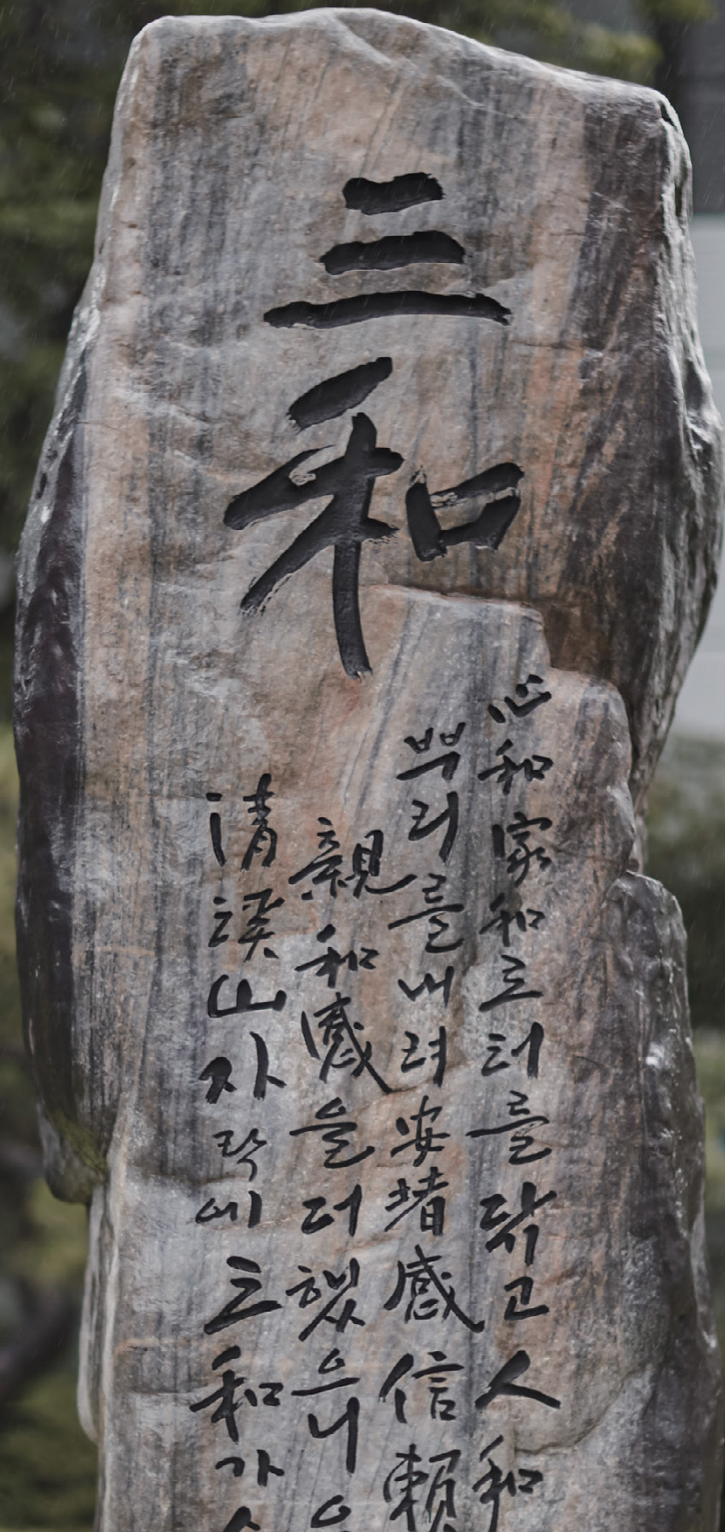 三和
心和家和로터를닦고人和
뿌리를내려安堵感信賴
親和感을더했으니
清溪山자락에三和가